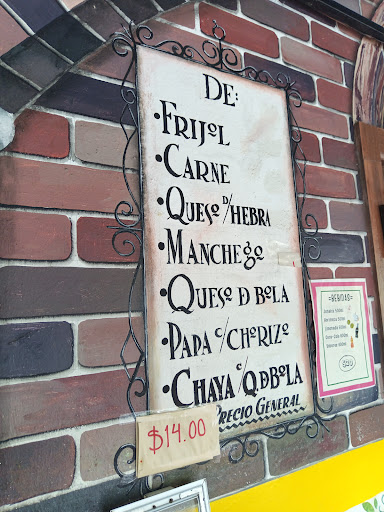 DE:
•FRIJOL
•CARNE
•QUESO D/HEBRA
•MANCHEGO
•QUESO D BOLA
•PAPA C/CHORIZO
•CHAYA C/Q.D BOLA
PRECIO GENERAL
$14.00
=BEBIDAS=